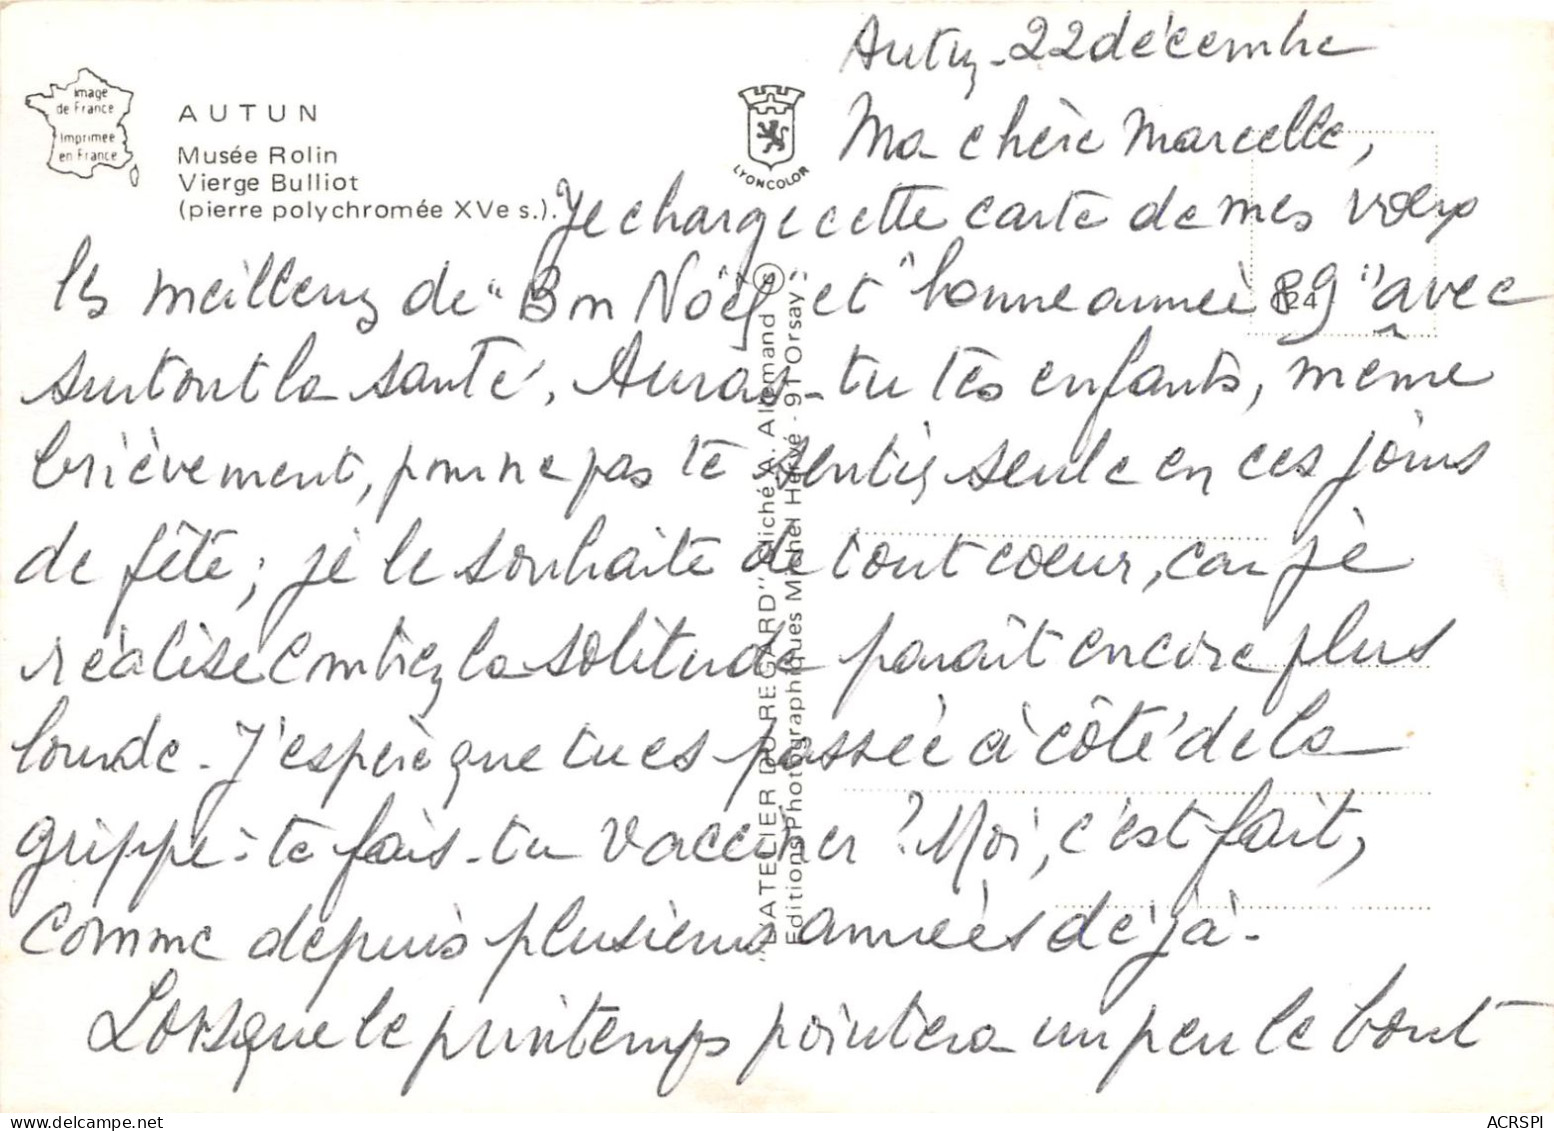 Autun - 22 décembre
image
de France
Imprimée
en France
AUTUN
Musée Rolin
Vierge Bulliot
(pierre polychromée XVe s.).
LYONCOLOR
Ma chère Marcelle,
Je charge cette carte de mes voeux
les meilleurs de "Bon Noël" et "bonne année 89" avec
surtout la santé. Auras-tu tes enfants, même
brièvement, pour ne pas te sentir seule en ces jours
de fête ; je le souhaite de tout coeur, car je
réalise combien la solitude paraît encore plus
lourde. J'espère que tu es passée à côté de la
grippe - te fais-tu vacciner ? Moi, c'est fait,
comme depuis plusieurs années déjà -
Lorsque le printemps pointera un peu le bout
"L'ATELIER DU REGARD" Cliché A. Allemand
Editions Photographiques Michel Hervé - 91 Orsay
124
ACRSPI